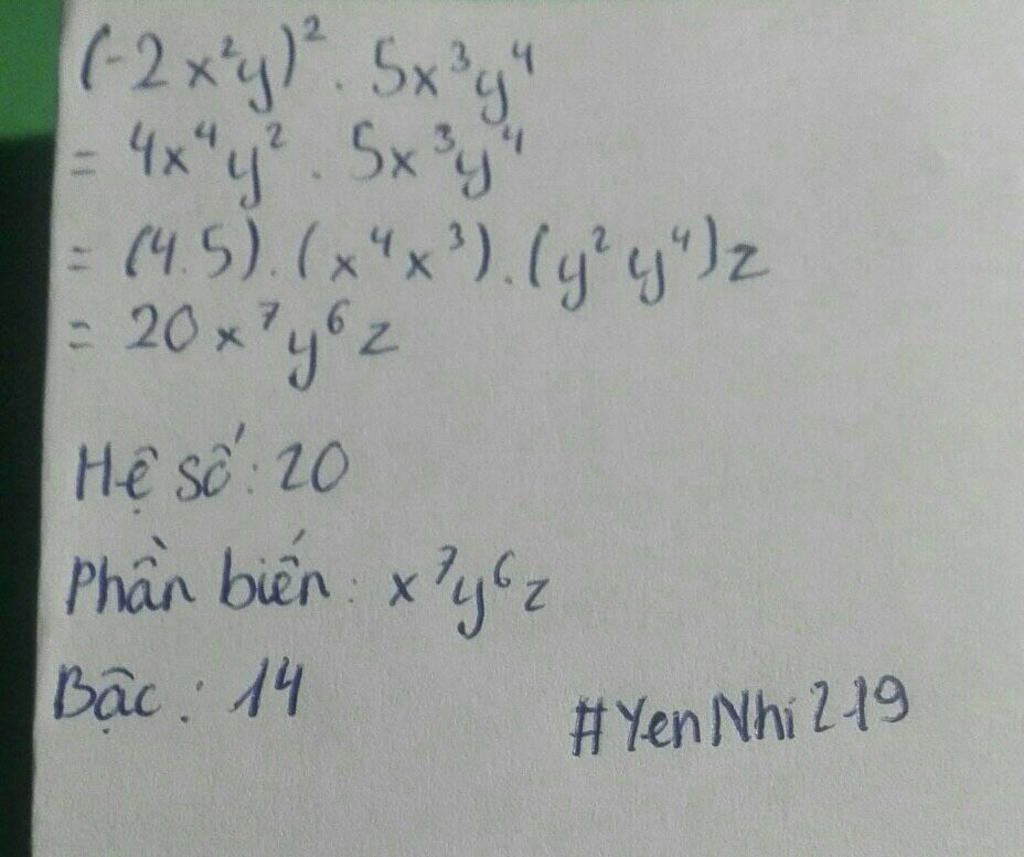 (-2x²y)² . 5x³y⁴
= 4x⁴y² . 5x³y⁴
= (4.5).(x⁴x³).(y²y⁴)z
= 20x⁷y⁶z
Hệ số: 20
Phần biến: x⁷y⁶z
Bậc: 14
#YenNhi219